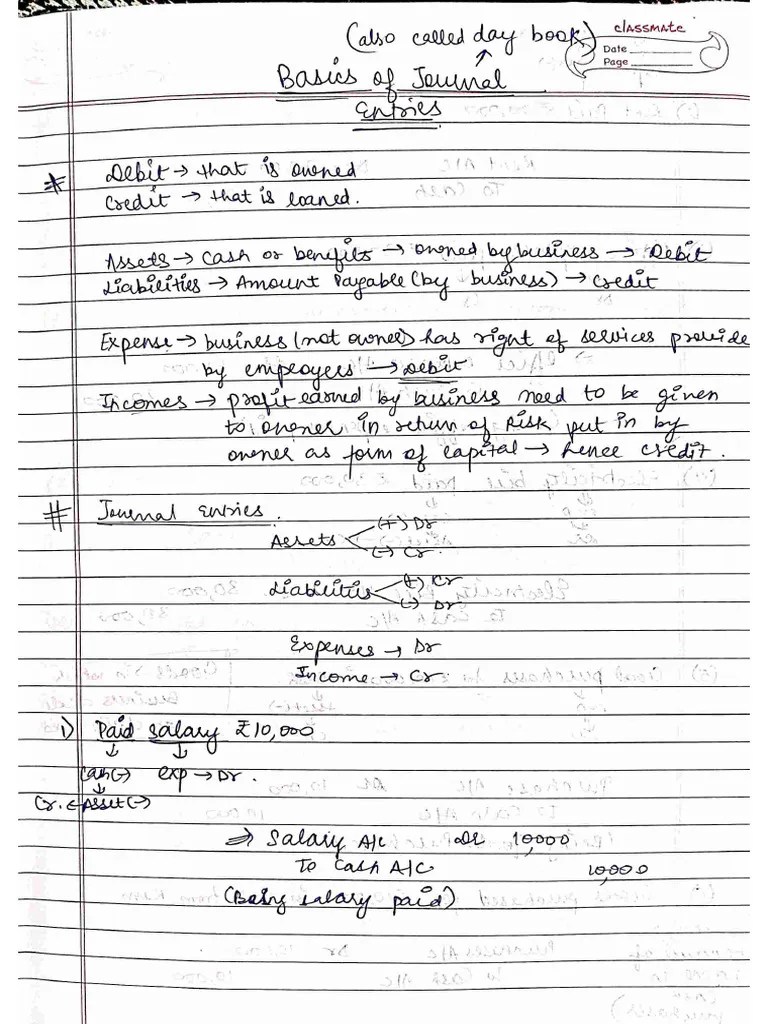 (also called day book)
classmate
Date
Page
Basics of Journal
Entries
* Debit → that is owned
Credit → that is loaned.
Assets → Cash or benefits → owned by business → Debit
Liabilities → Amount Payable (by business) → Credit
Expense → business (not owner) has right of services provide
by employees → Debit
Incomes → profit earned by business need to be given
to owner in return of Risk put in by
owner as form of capital → hence credit.
# Journal Entries.
(+) Dr
Assets
(-) Cr.
(+) Cr
Liabilities
(-) Dr
Expenses → Dr
Income → Cr
i) Paid salary ₹10,000
↓ ↓
Cash(-) exp → Dr.
↓
Cr. ← Asset(-)
⇒ Salary A/c Dr 10,000
To Cash A/C 10,000
(Being salary paid)